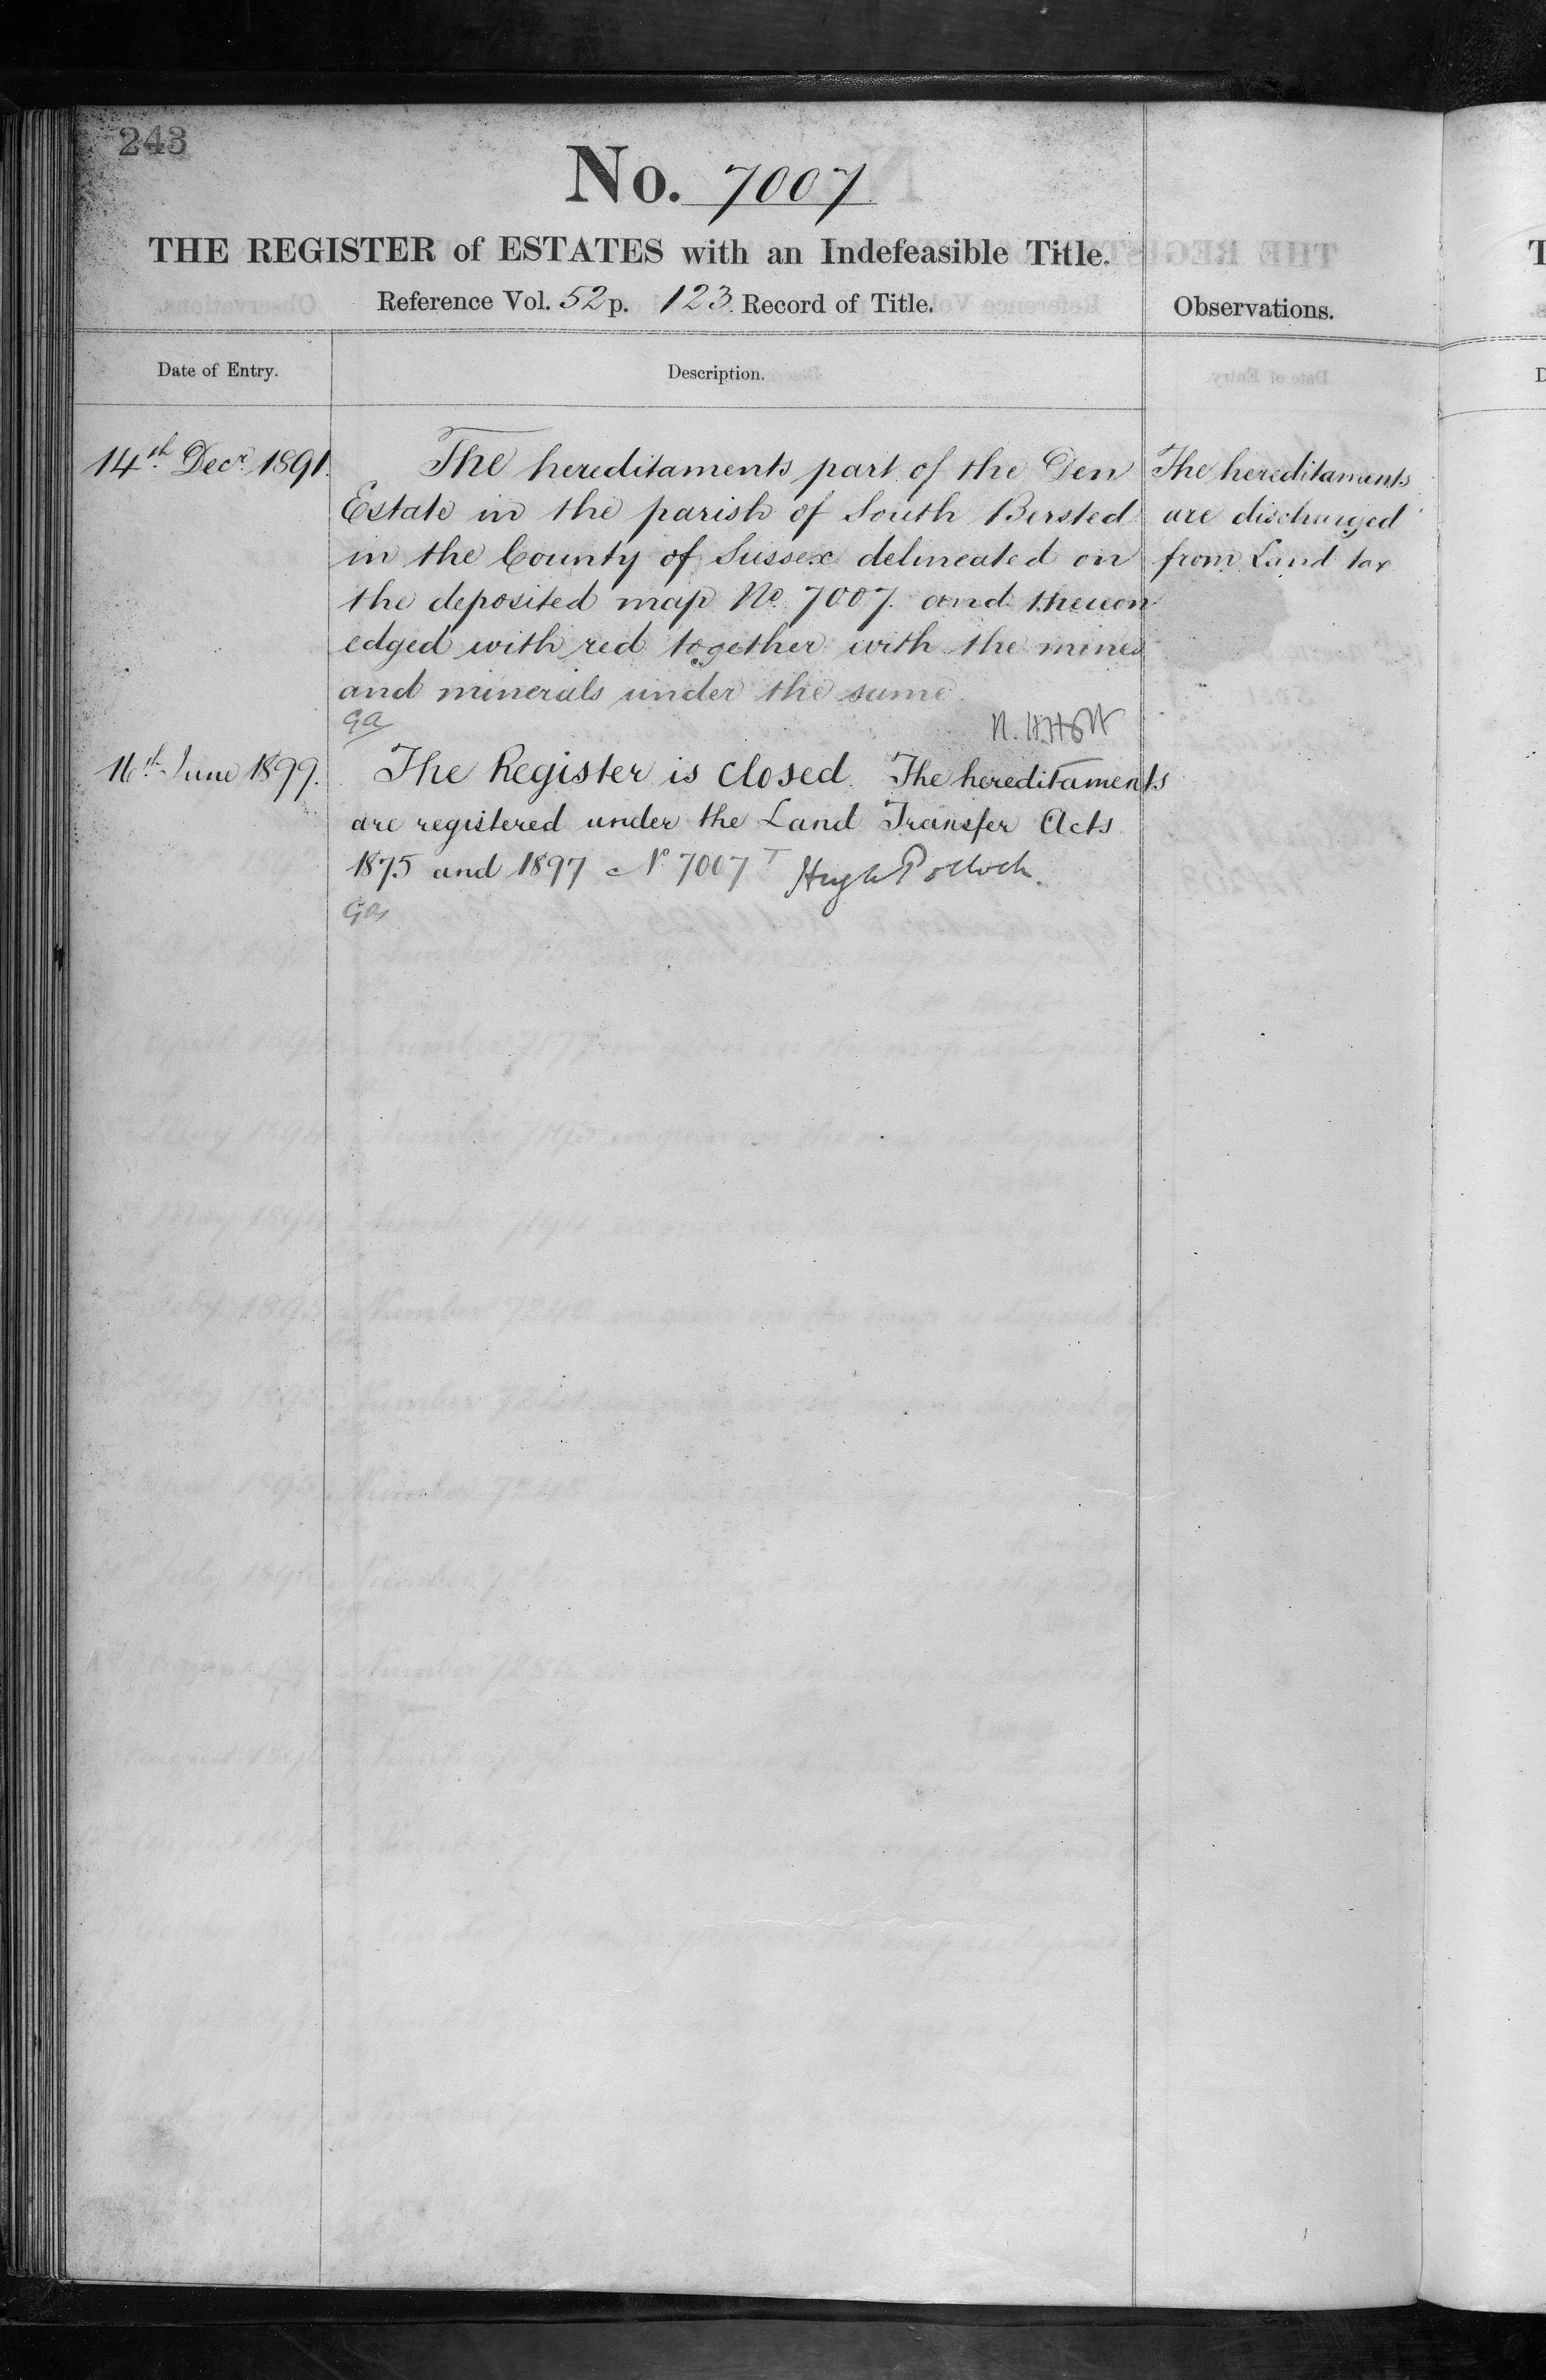 243
No. 7007
THE REGISTER of ESTATES with an Indefeasible Title.
Reference Vol. 52 p. 123. Record of Title.
Observations.
Date of Entry.
Description.
14th Decr. 1891.
The hereditaments part of the Den
Estate in the parish of South Bersted
in the County of Sussex delineated on
the deposited map No. 7007. and thereon
edged with red together with the mines
and minerals under the same
The hereditaments
are discharged
from Land tax
Ga
16th June 1899.
The Register is closed. The hereditaments
are registered under the Land Transfer Acts
1875 and 1897 No. 7007 T Hugh Pollock.
Ga